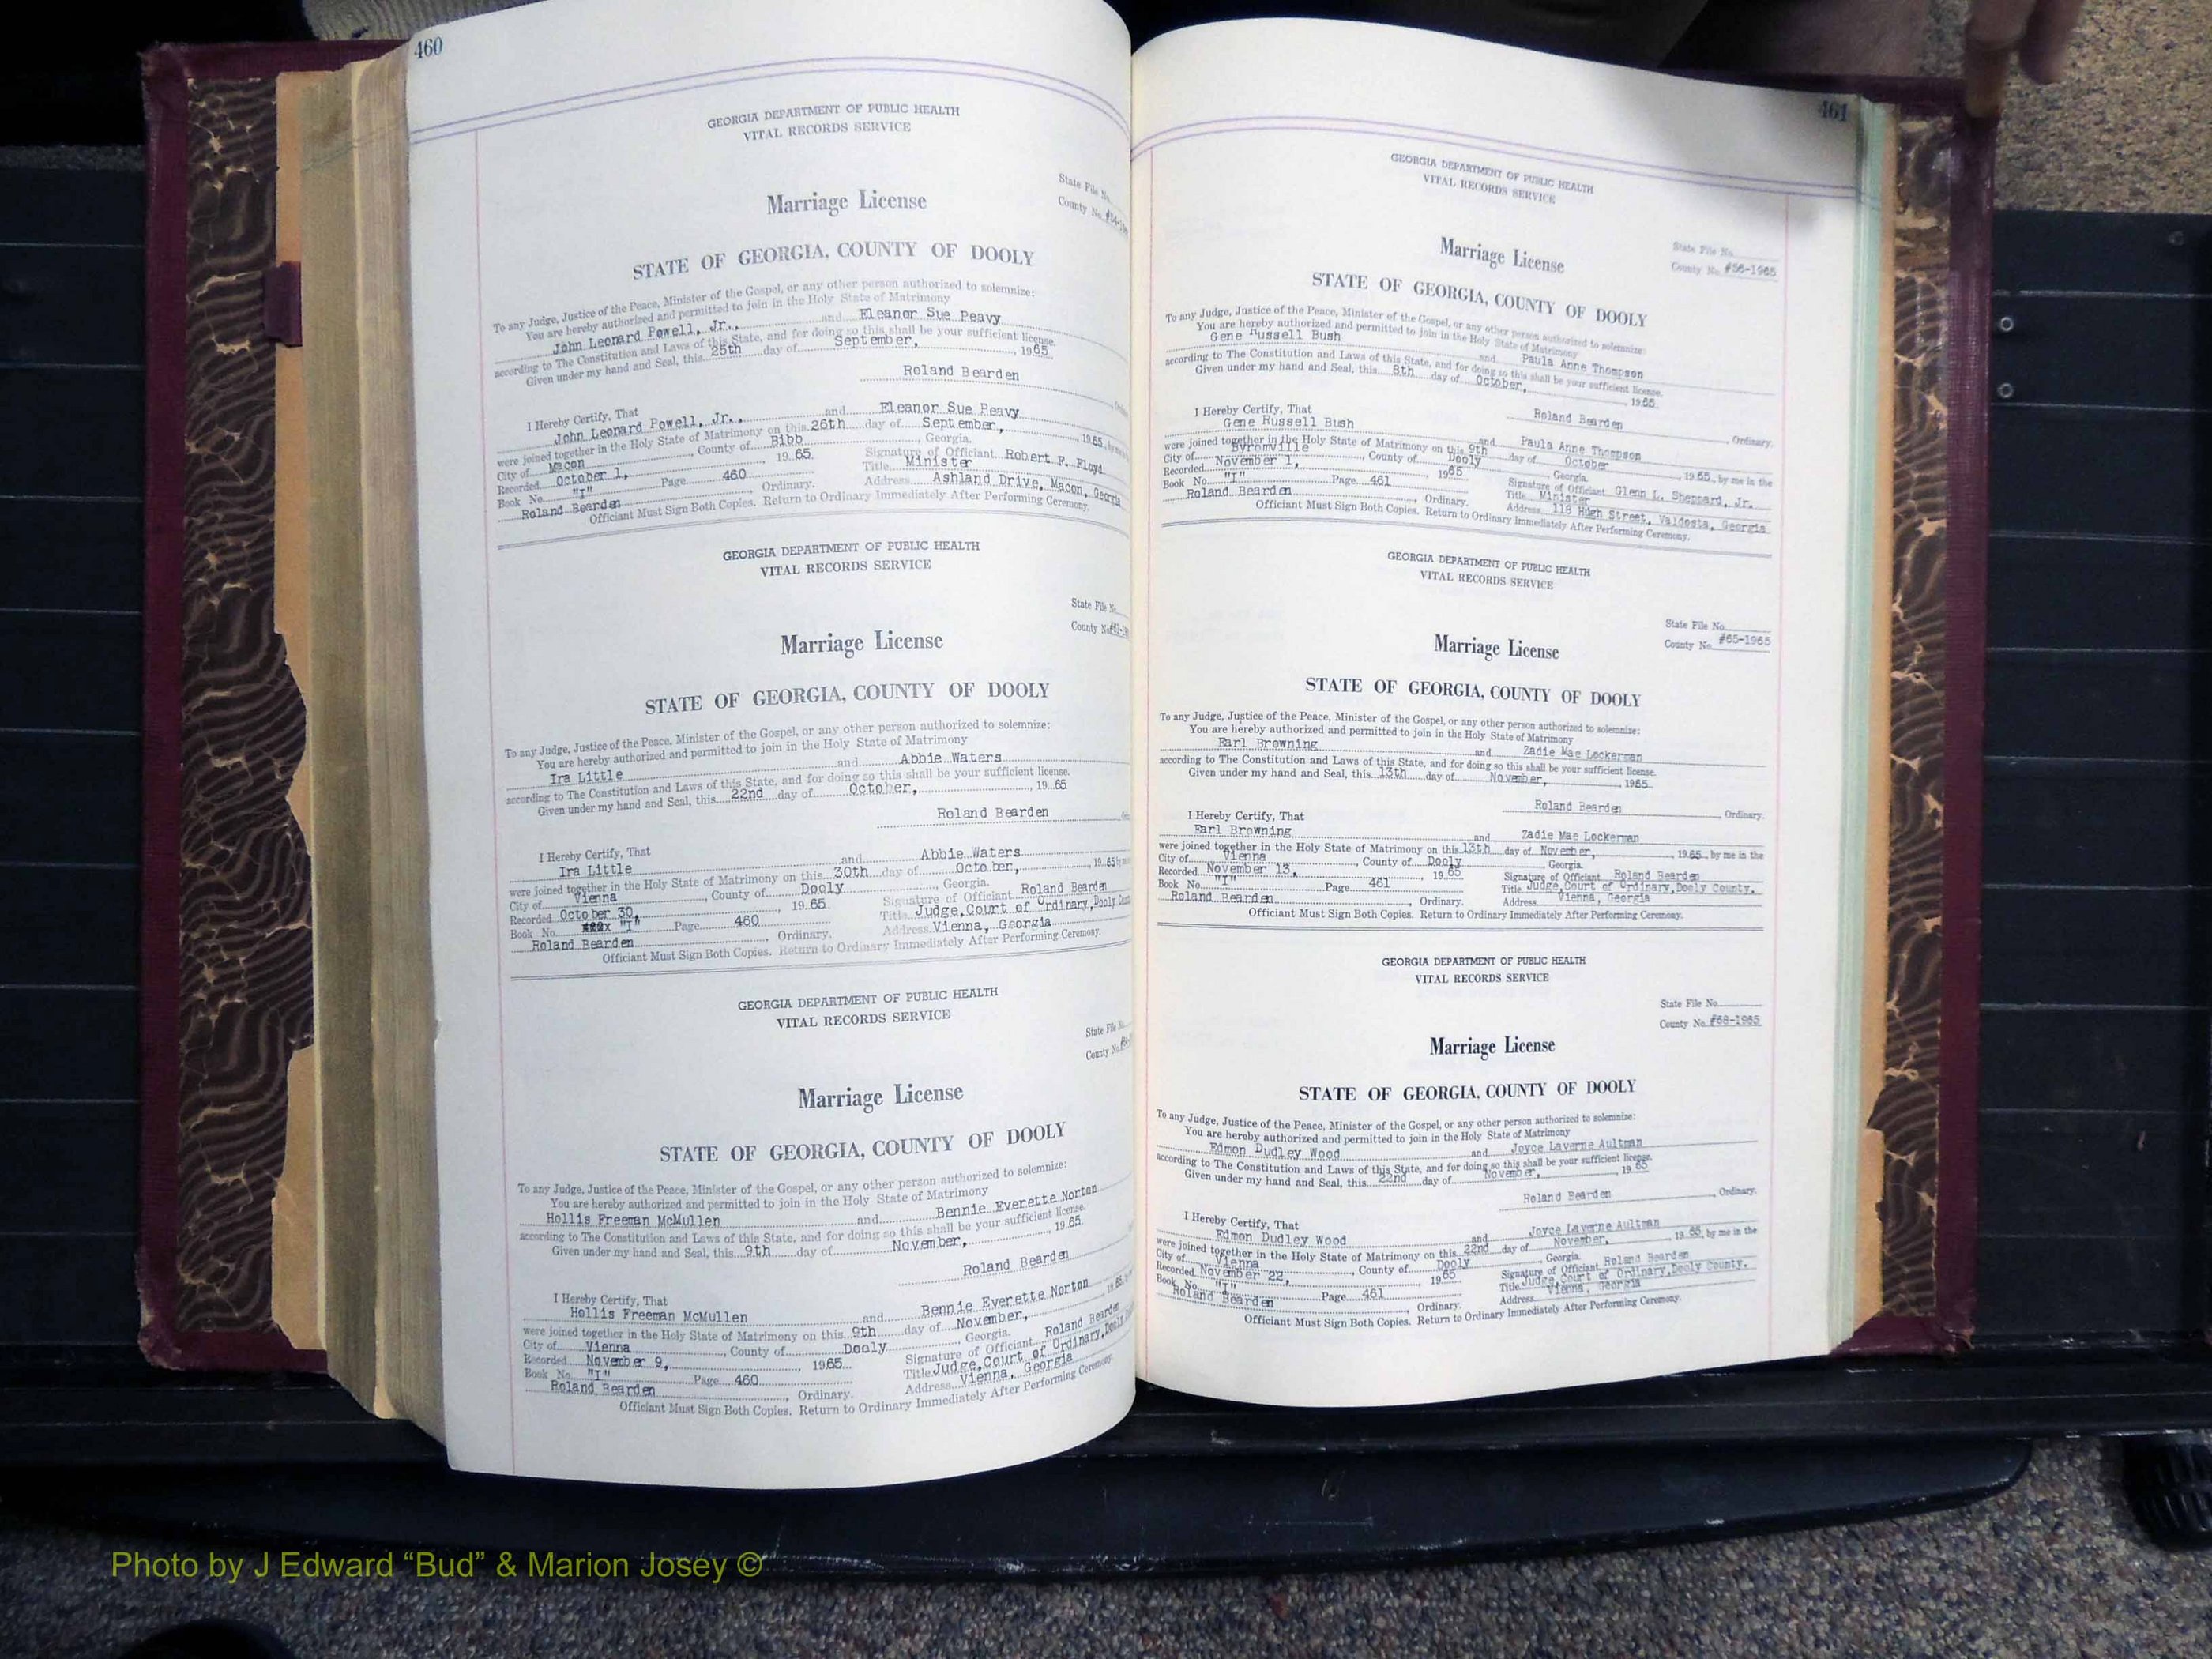 460
GEORGIA DEPARTMENT OF PUBLIC HEALTH
VITAL RECORDS SERVICE
State File No.
County No.
Marriage License
STATE OF GEORGIA, COUNTY OF DOOLY
To any Judge, Justice of the Peace, Minister of the Gospel, or any other person authorized to solemnize:
You are hereby authorized and permitted to join in the Holy State of Matrimony
John Leonard Powell, Jr., and Eleanor Sue Peavy
according to The Constitution and Laws of this State, and for doing so this shall be your sufficient license.
Given under my hand and Seal, this 25th day of September, 1965
Roland Bearden
I Hereby Certify, That
John Leonard Powell, Jr., and Eleanor Sue Peavy
were joined together in the Holy State of Matrimony on this 26th day of September, 1965, by me in
City of Macon, County of Bibb, Georgia.
Recorded October 1, 1965. Signature of Officiant Robert F. Floyd
Book No. "I" Page 460 Title Minister
Roland Bearden, Ordinary. Address Ashland Drive, Macon, Georgia
Officiant Must Sign Both Copies. Return to Ordinary Immediately After Performing Ceremony.
GEORGIA DEPARTMENT OF PUBLIC HEALTH
VITAL RECORDS SERVICE
State File No.
County No.
Marriage License
STATE OF GEORGIA, COUNTY OF DOOLY
To any Judge, Justice of the Peace, Minister of the Gospel, or any other person authorized to solemnize:
You are hereby authorized and permitted to join in the Holy State of Matrimony
Ira Little and Abbie Waters
according to The Constitution and Laws of this State, and for doing so this shall be your sufficient license.
Given under my hand and Seal, this 22nd day of October, 1965
Roland Bearden
I Hereby Certify, That
Ira Little and Abbie Waters
were joined together in the Holy State of Matrimony on this 30th day of October, 1965 by me
City of Vienna, County of Dooly, Georgia.
Recorded October 30, 1965. Signature of Officiant Roland Bearden
Book No. "I" Page 460 Title Judge, Court of Ordinary, Dooly
Roland Bearden, Ordinary. Address Vienna, Georgia
Officiant Must Sign Both Copies. Return to Ordinary Immediately After Performing Ceremony.
GEORGIA DEPARTMENT OF PUBLIC HEALTH
VITAL RECORDS SERVICE
State File No.
County No.
Marriage License
STATE OF GEORGIA, COUNTY OF DOOLY
To any Judge, Justice of the Peace, Minister of the Gospel, or any other person authorized to solemnize:
You are hereby authorized and permitted to join in the Holy State of Matrimony
Hollis Freeman McMullen and Bennie Everette Norton
according to The Constitution and Laws of this State, and for doing so this shall be your sufficient license.
Given under my hand and Seal, this 9th day of November, 1965
Roland Bearden
I Hereby Certify, That
Hollis Freeman McMullen and Bennie Everette Norton
were joined together in the Holy State of Matrimony on this 9th day of November, 1965
City of Vienna, County of Dooly, Georgia.
Recorded November 9, 1965 Signature of Officiant Roland Bearden
Book No. "I" Page 460 Title Judge, Court of Ordinary, Dooly
Roland Bearden, Ordinary. Address Vienna, Georgia
Officiant Must Sign Both Copies. Return to Ordinary Immediately After Performing Ceremony.
461
GEORGIA DEPARTMENT OF PUBLIC HEALTH
VITAL RECORDS SERVICE
State File No.
County No. #56-1965
Marriage License
STATE OF GEORGIA, COUNTY OF DOOLY
To any Judge, Justice of the Peace, Minister of the Gospel, or any other person authorized to solemnize:
You are hereby authorized and permitted to join in the Holy State of Matrimony
Gene Russell Bush and Paula Anne Thompson
according to The Constitution and Laws of this State, and for doing so this shall be your sufficient license.
Given under my hand and Seal, this 8th day of October, 1965
Roland Bearden, Ordinary.
I Hereby Certify, That
Gene Russell Bush and Paula Anne Thompson
were joined together in the Holy State of Matrimony on this 9th day of October 1965, by me in the
City of Byromville, County of Dooly, Georgia.
Recorded November 1, 1965 Signature of Officiant Glenn L. Sheppard, Jr.
Book No. "I" Page 461 Title Minister
Roland Bearden, Ordinary. Address 118 Hugh Street, Valdosta, Georgia
Officiant Must Sign Both Copies. Return to Ordinary Immediately After Performing Ceremony.
GEORGIA DEPARTMENT OF PUBLIC HEALTH
VITAL RECORDS SERVICE
State File No.
County No. #65-1965
Marriage License
STATE OF GEORGIA, COUNTY OF DOOLY
To any Judge, Justice of the Peace, Minister of the Gospel, or any other person authorized to solemnize:
You are hereby authorized and permitted to join in the Holy State of Matrimony
Earl Browning and Zadie Mae Lockerman
according to The Constitution and Laws of this State, and for doing so this shall be your sufficient license.
Given under my hand and Seal, this 13th day of November, 1965
Roland Bearden, Ordinary.
I Hereby Certify, That
Earl Browning and Zadie Mae Lockerman
were joined together in the Holy State of Matrimony on this 13th day of November, 1965, by me in the
City of Vienna, County of Dooly, Georgia.
Recorded November 13, 1965 Signature of Officiant Roland Bearden
Book No. "I" Page 461 Title Judge, Court of Ordinary, Dooly County.
Roland Bearden, Ordinary. Address Vienna, Georgia
Officiant Must Sign Both Copies. Return to Ordinary Immediately After Performing Ceremony.
GEORGIA DEPARTMENT OF PUBLIC HEALTH
VITAL RECORDS SERVICE
State File No.
County No. #68-1965
Marriage License
STATE OF GEORGIA, COUNTY OF DOOLY
To any Judge, Justice of the Peace, Minister of the Gospel, or any other person authorized to solemnize:
You are hereby authorized and permitted to join in the Holy State of Matrimony
Edmon Dudley Wood and Joyce Laverne Aultman
according to The Constitution and Laws of this State, and for doing so this shall be your sufficient license.
Given under my hand and Seal, this 22nd day of November, 1965
Roland Bearden, Ordinary.
I Hereby Certify, That
Edmon Dudley Wood and Joyce Laverne Aultman
were joined together in the Holy State of Matrimony on this 22nd day of November, 1965, by me in the
City of Vienna, County of Dooly Georgia.
Recorded November 22, 1965 Signature of Officiant Roland Bearden
Book No. "I" Page 461 Title Judge, Court of Ordinary, Dooly County.
Roland Bearden, Ordinary. Address Vienna, Georgia
Officiant Must Sign Both Copies. Return to Ordinary Immediately After Performing Ceremony.
Photo by J Edward “Bud” & Marion Josey ©